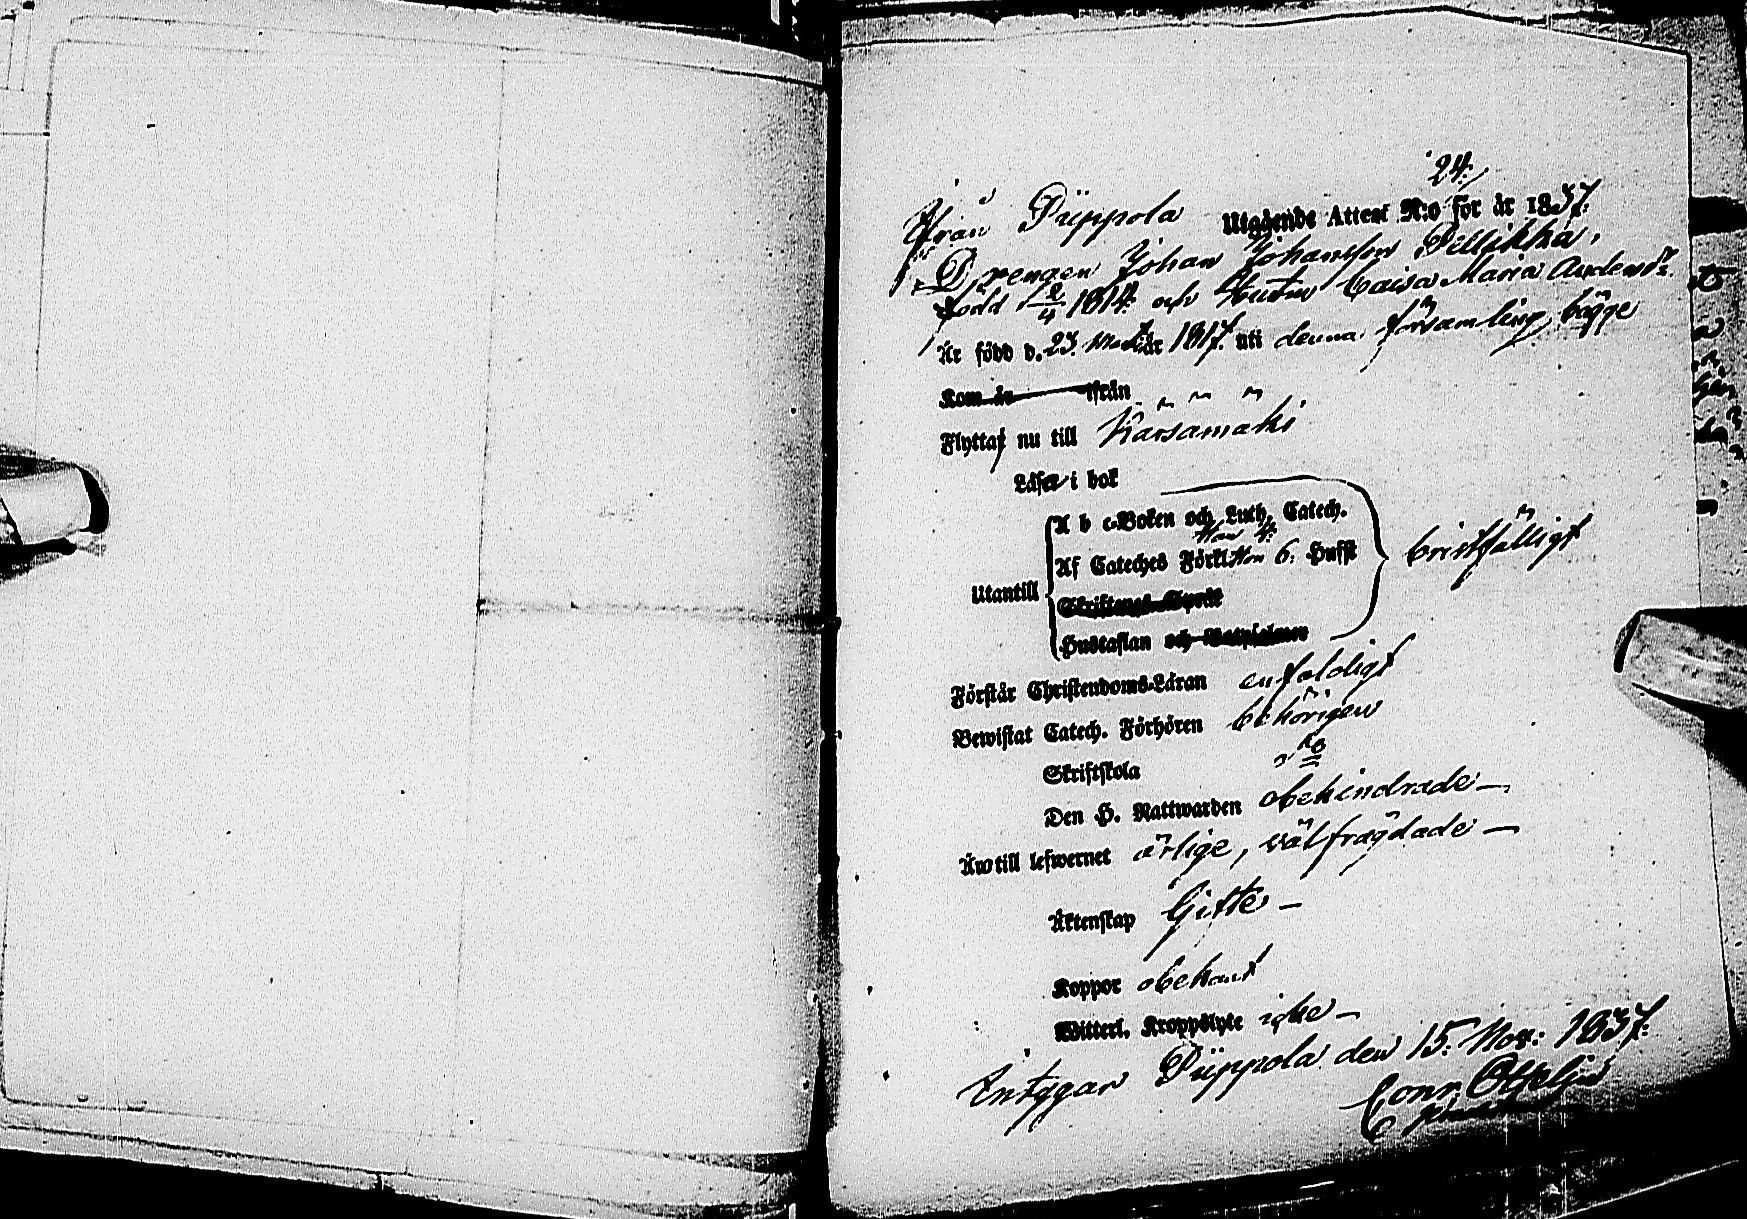 24./
Ifrån Püppola Utgående Attest N:o för år 1837.
Drengen Johan Johansson Pellikka,
född 8/4 1814. och Hustru Caisa Maria Andersdr
Är född d. 23. år 1817. uti denna församling, bägge
Kom år ifrån
Flyttat nu till Kärsämäki
Läser i bok
A b c-Boken och Luth. Catech.
Utantill Af Cateches Förkl. Hon 6. Husst bristfälligt
Skriftenes Språk
Hustaflan och Botpsalmer
Förstår Christendoms-Läran enfaldigt
Bewistat Catech. Förhören behörigen
Skriftskola
Den H. Nattwarden obehindrade –
Äro till lefwernet ärlige, wälfrägdade –
Äktenskap Gifte –
Koppor obekant
Witterl. Kroppslyte icke –
Intygar Püppola den 15. Nov: 1837.